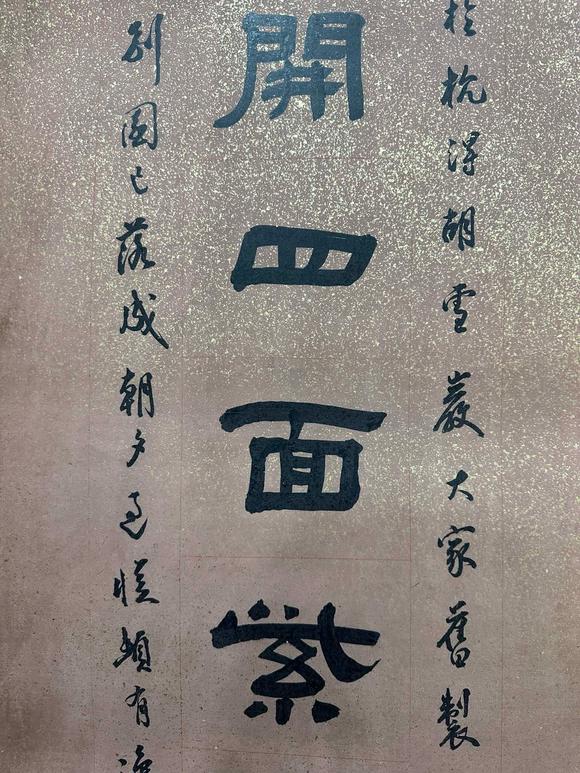 於杭得胡雪巖大家舊製
開四面紫
別園已落成朝夕過從頗有